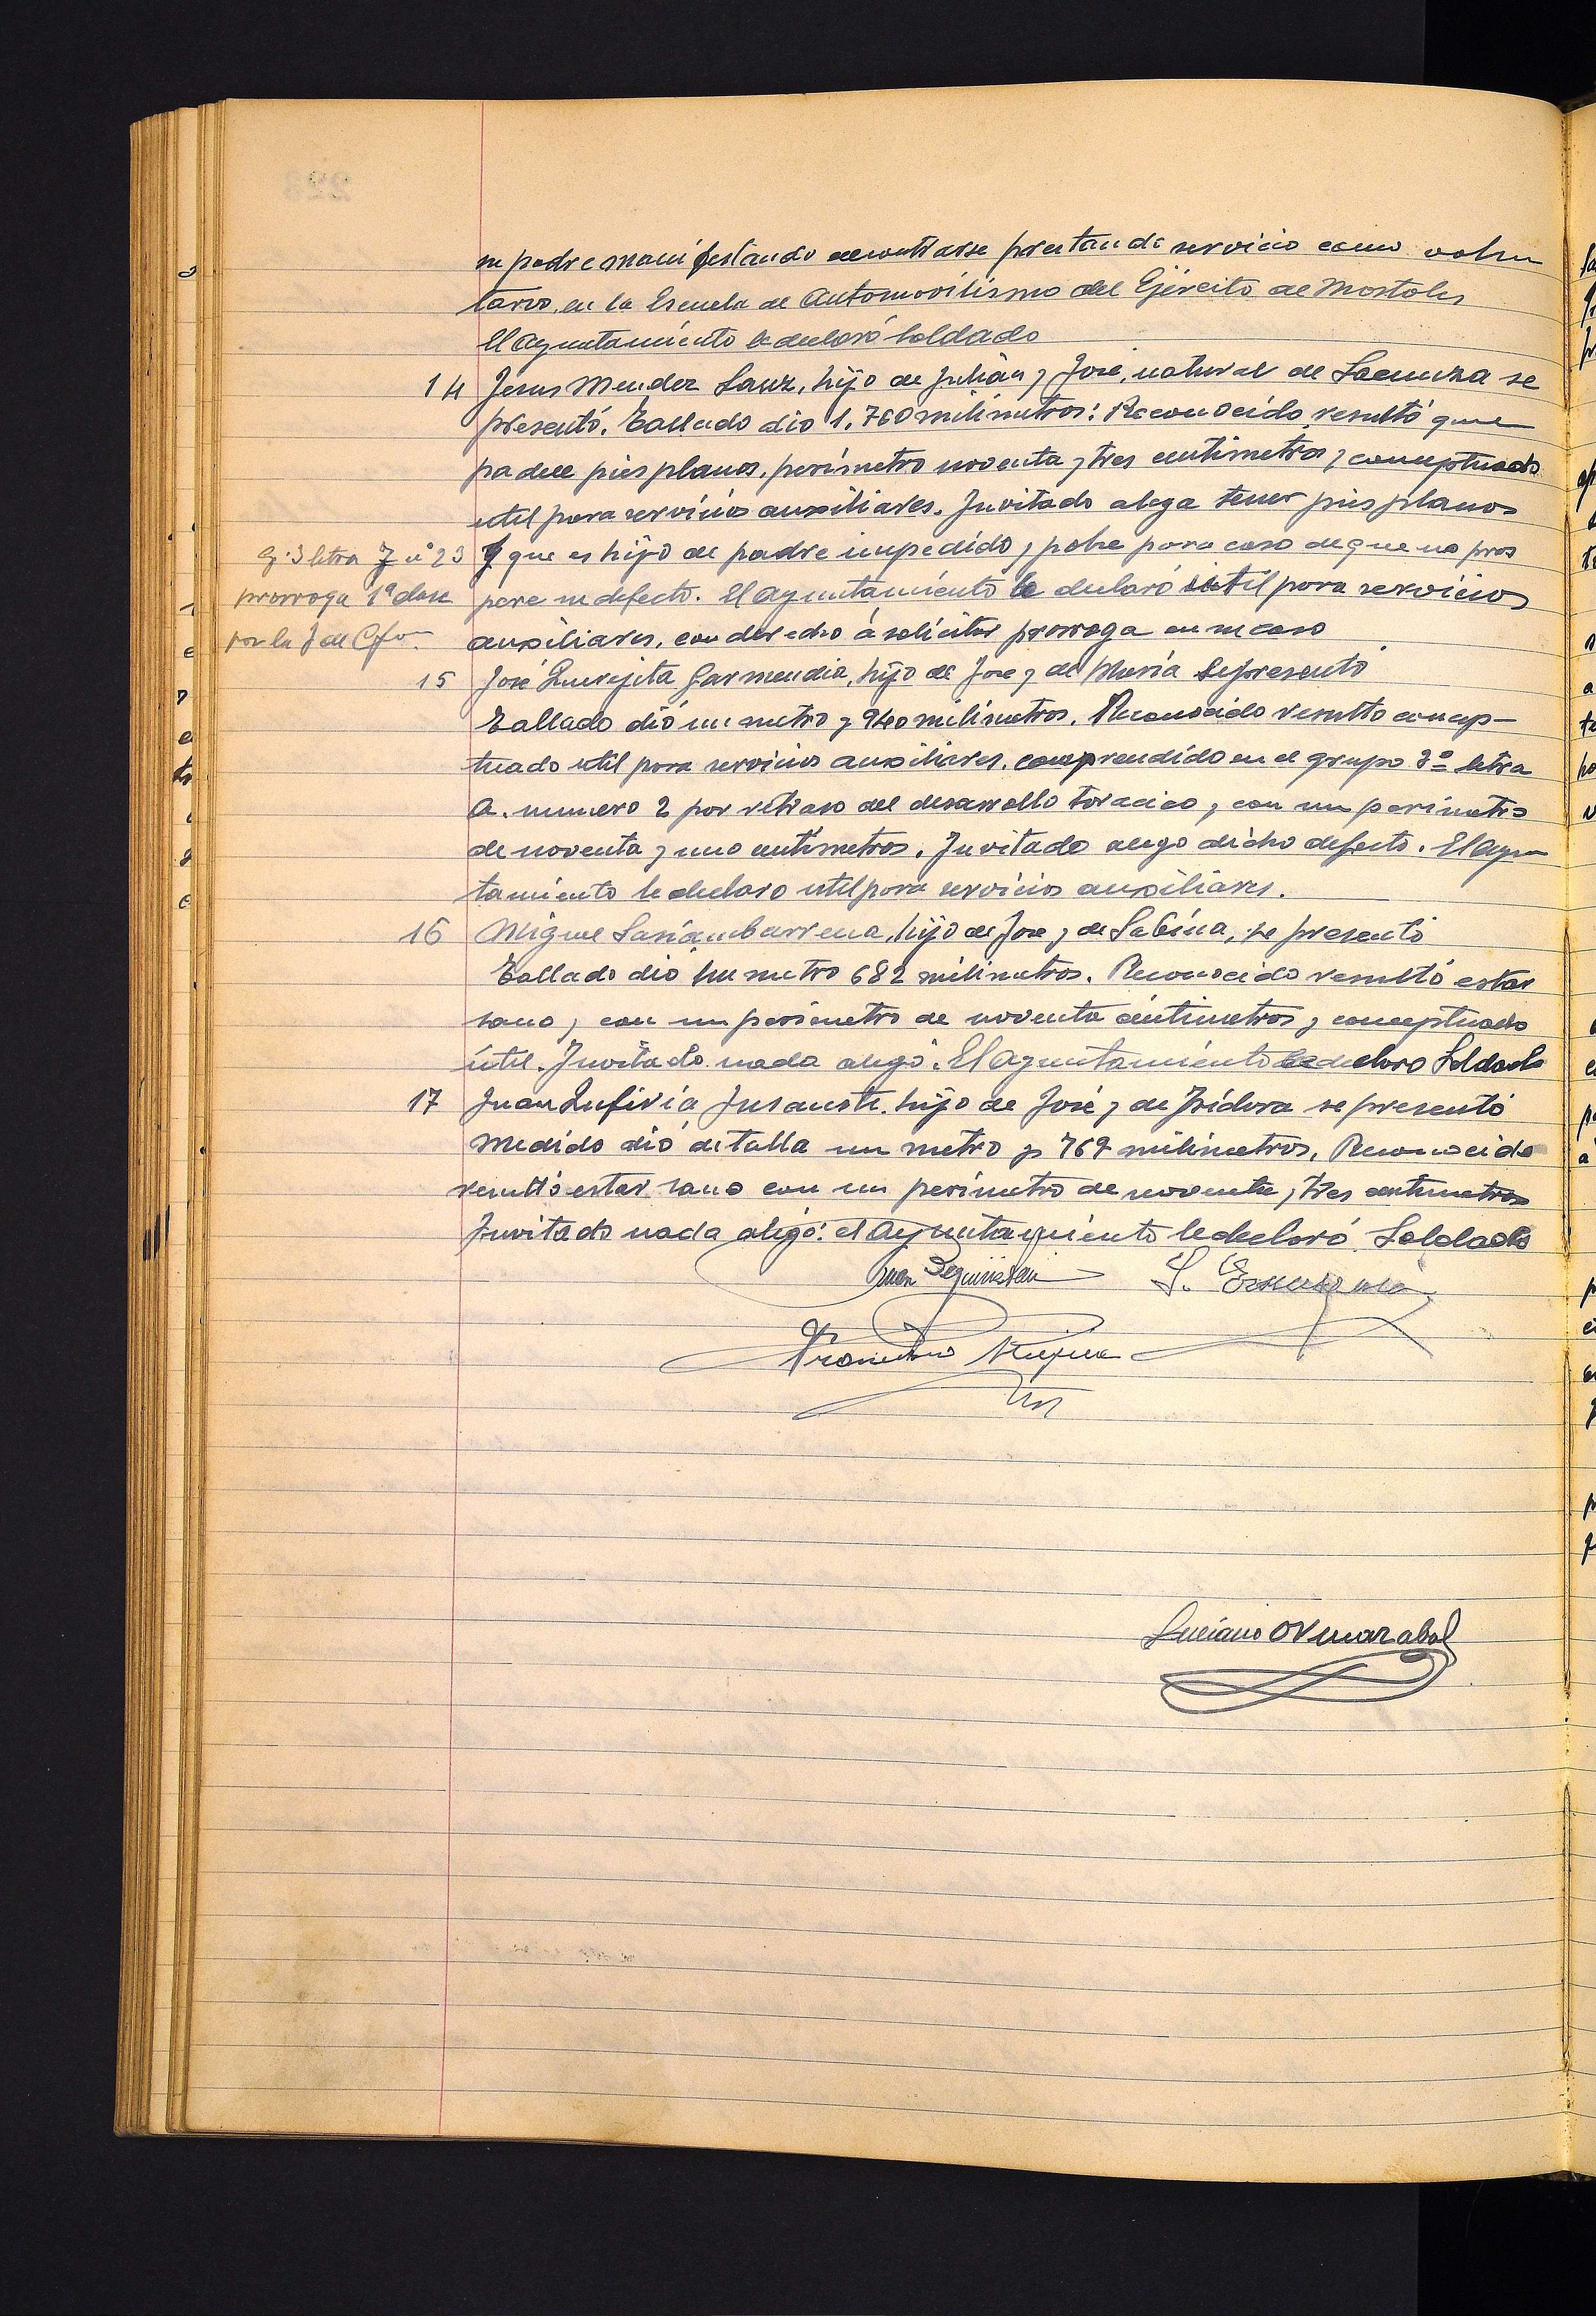 su padre manifestando encontrarse prestando servicio como volun
tario. en la Escuela de Automovilismo del Ejército de Mostoles
El Ayuntamiento le declaró Soldado
14 Jesus Mendez Sanz, hijo de Julián y José, natural de se
presentó. Tallado dio 1.760 milimetros: Reconocido resultó que
padece pies planos. perímetro noventa y tres centimetros y conceptuado
util para servicios auxiliares. Invitado alega tener pies planos
G. 3 letra J nº 23 Y que es hijo de padre impedido y pobre para caso de que no pros
prorroga 1ª clase pere su defecto. El Ayuntamiento le declaró útil para servicios
por la J de auxiliares, con derecho á solicitar prorroga en su caso
15 José Garmendia, hijo de Jose y de María Se presentó
Tallado dió un metro y 940 milimetros. Reconocido resulto concep-
tuado util para servicios auxiliares. comprendido en el grupo 3º letra
A. numero 2 por retraso del desarrollo toracico y con un perimetro
de noventa y uno centímetros. Invitado alego dicho defecto. El Ayun
tamiento le declaro util para servicios auxiliares.
16 Miguel Sariambarrena, hijo de Jose y de Sabina, se presentó
Tallado dió un metro 682 milimetros. Reconocido resultó estar
sano y con un perimetro de noventa centimetros y conceptuado
útil. Invitado nada alegó. El Ayuntamiento le declaro Soldado
17 Juan Insausti. hijo de José y de Isidora se presentó
Medido dió de talla un metro y 769 milimetros. Reconocido
resultó estar sano con un perimetro de noventa y tres centimetros
Invitado nada alegó: el Ayuntamiento le declaró Soldado
Juan
Francisco
Luciano Ormazabal